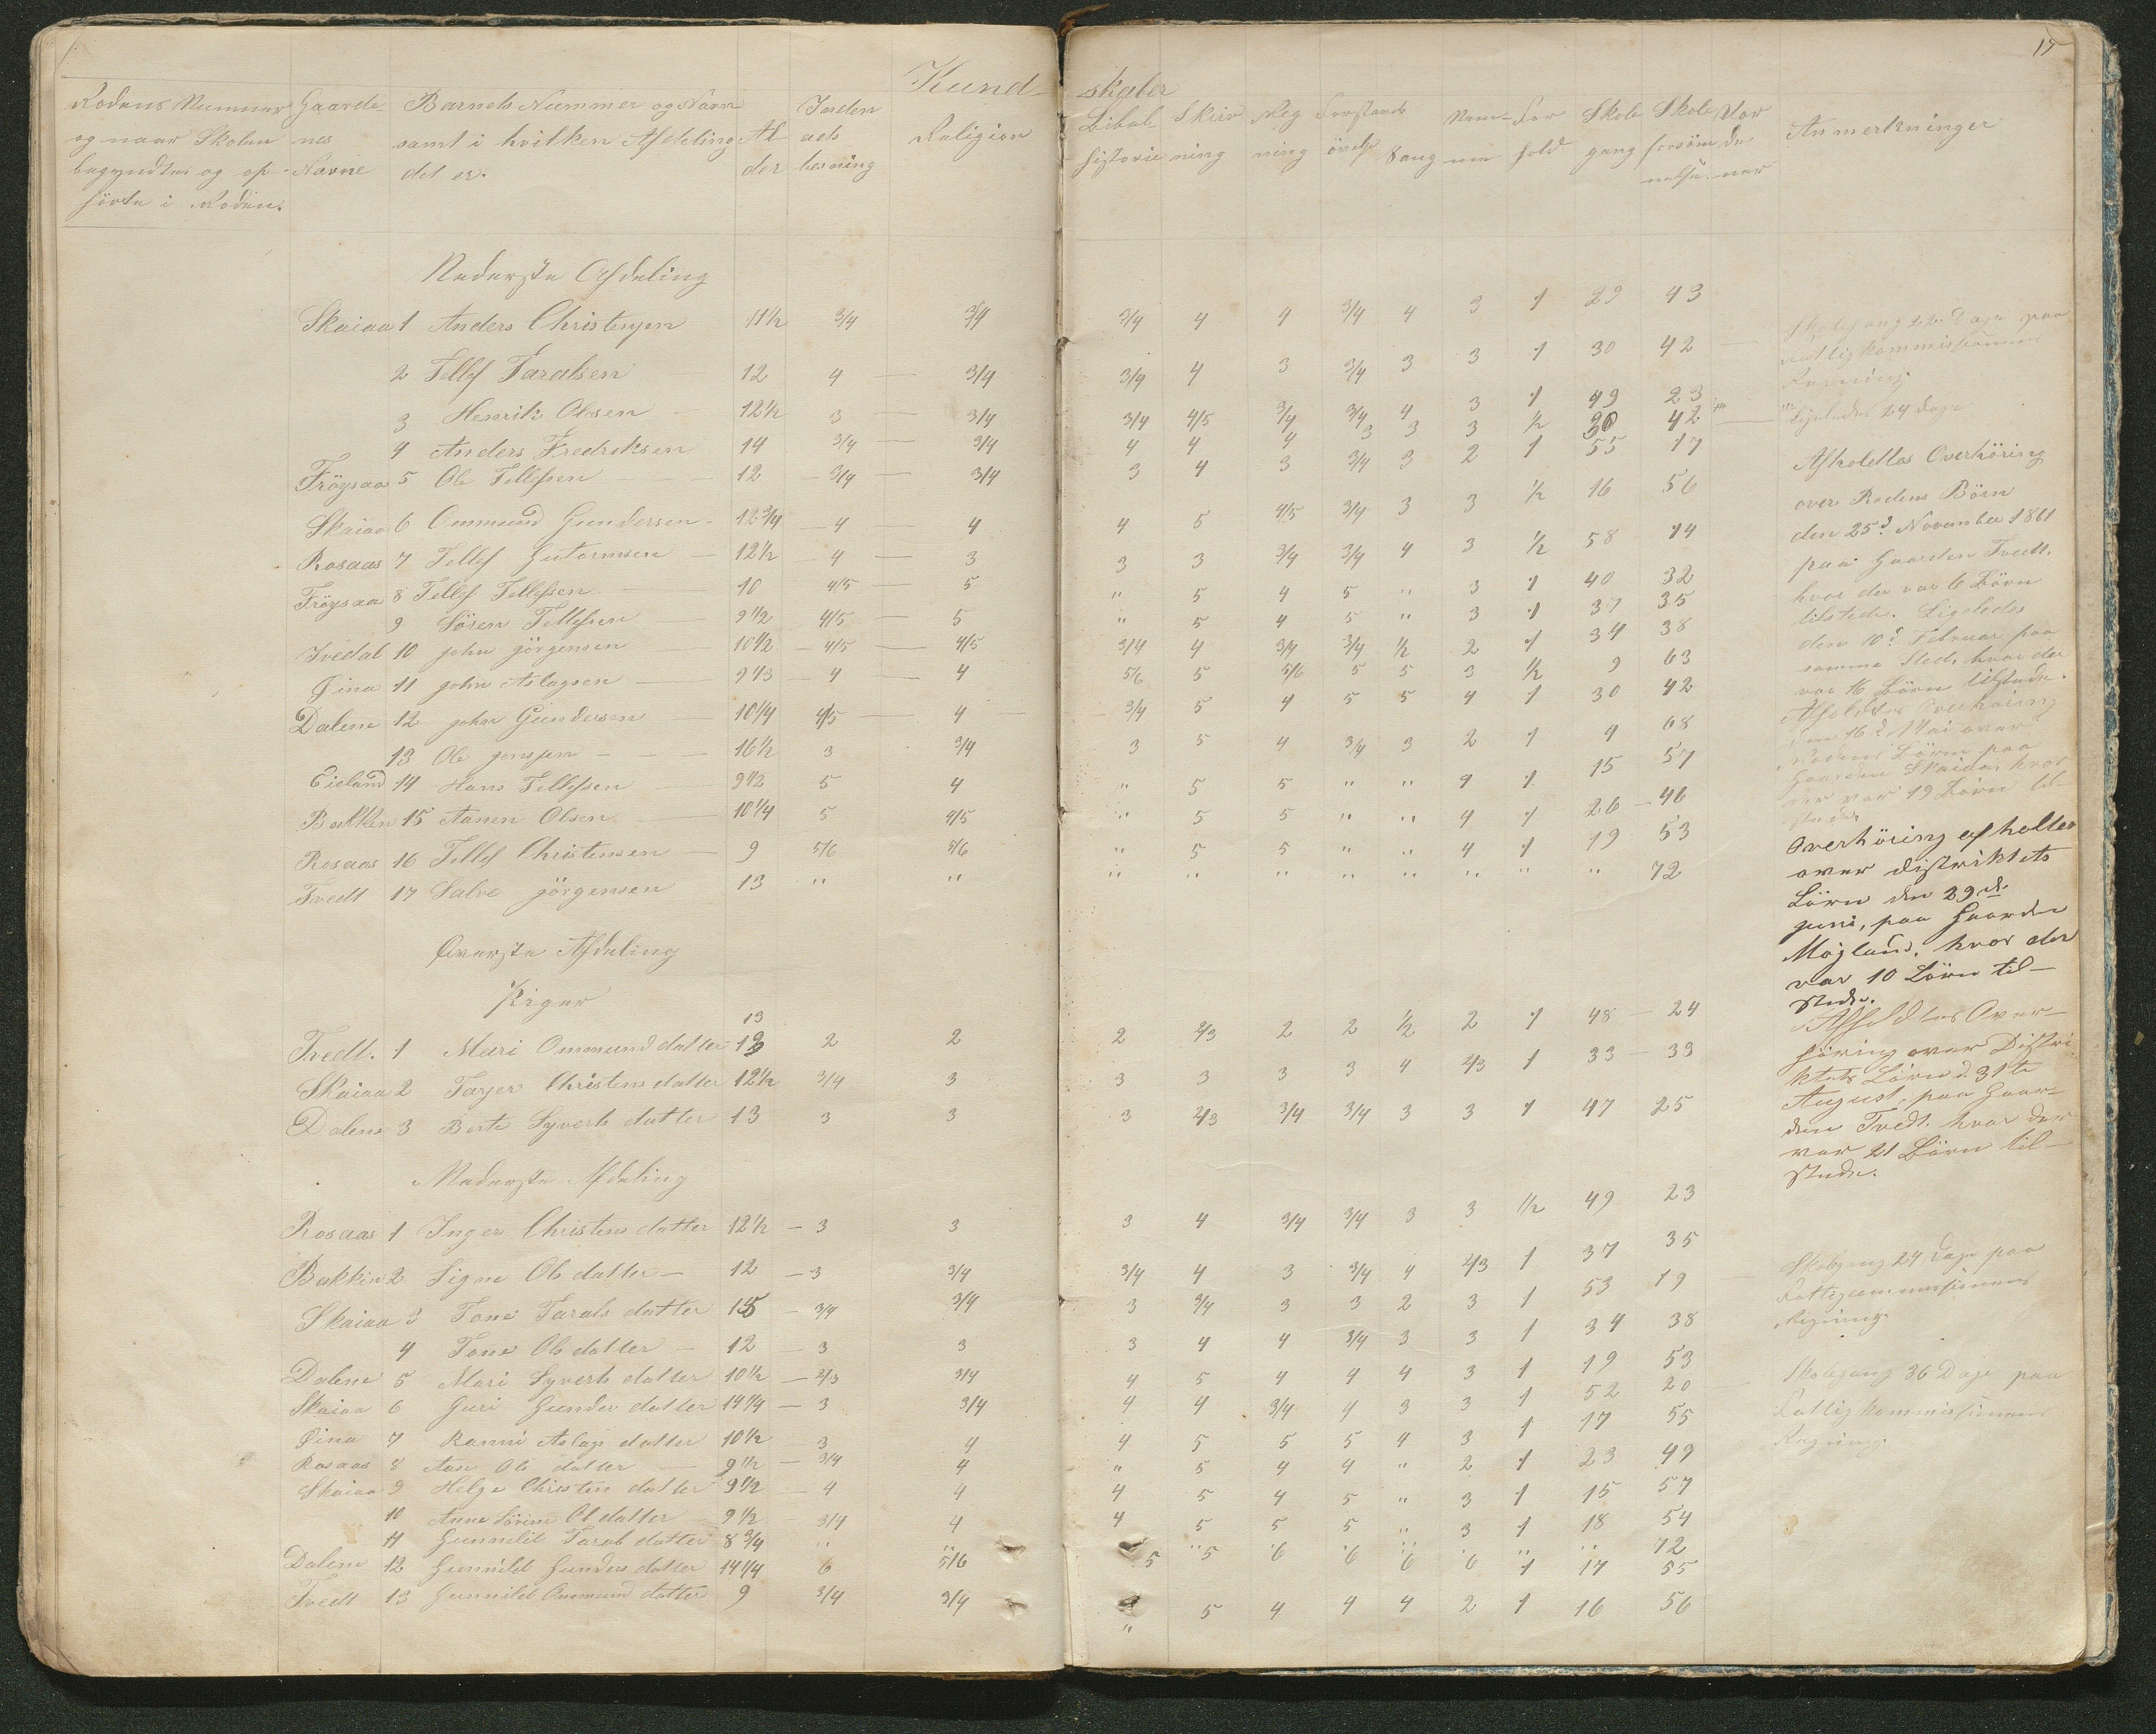 17
Kund- skaber
Rodens Nummer og naar Skolen begyndtes og op- hörte i Roden.
Gaarde nes Navne
Barnets Nummer og Navn samt i hvilken Afdeling det er.
Al der
Inden ads læsning
Religion
Bibel- historie
Skriv ning
Reg ning
Forstands övelse
Sang
Nem- me
For hold
Skole gang
Skole forsöm melse
Vor de ner
Anmerkninger
Nederste Afdeling
Skaiaa 1 Anders Christensen 11½ 3/4 3/4 3/4 4 4 3/4 4 3 1 29 43
2 Tellef Taralsen 12 4 — 3/4 3/4 4 3 3/4 3 3 1 30 42 —
3 Henrik Olesen — 12½ 3 — 3/4 3/4 4/5 3/4 3/4 4 3 1 49 23
4 Anders Fredriksen 14 3/4 — 3/4 4 4 4 3 3 3 ½ 30 42 —
Fröysaa 5 Ole Tellefsen 12 — 3/4 — 3/4 3 4 3 3/4 3 2 1 55 17
Skaiaa 6 Ommund Gundersen 12 3/4 4 — 4 4 5 4/5 3/4 3 3 ½ 16 56
Rosaas 7 Tellef Gutormsen — 12½ 4 — 3 3 3 3/4 3/4 4 3 ½ 58 14
Fröysaa 8 Tellef Tellefsen 10 4/5 — 5 " 5 4 5 " 3 1 40 32
9 Sören Tellefsen 9½ 4/5 — 5 " 5 4 5 " 3 1 37 35
Ivedal 10 john jörgensen 10½ — 4/5 — 4/5 3/4 4 3/4 3/4 ½ 2 1 34 38
Øina 11 john Aslagsen 9 1/3 — 4 — 4 5/6 5 5/6 5 5 3 ½ 9 63
Dalene 12 john Gundersen 10 1/4 4/5 — 4 — 3/4 5 4 5 5 4 1 30 42
13 Ole jenssen 16½ 3 3/4 3 5 4 3/4 3 2 1 4 68
Eieland 14 Hans Tellefsen 9½ 5 4 " 5 5 " " 4 1 15 57
Bakken 15 Aanen Olsen 10 1/4 5 4/5 " 5 5 " " 4 1 26 46
Rosaas 16 Tellef Christensen — 9 5/6 5/6 " 5 5 " " 4 1 19 53
Tvedt 17 Salve jörgensen 13 " " " " " " " " " " 72
Överste Afdeling
Piger
Tvedt. 1 Mari Ommunddatter 13 2 2 2 2/3 2 2 ½ 2 1 48 — 24
Skaiaa 2 Tarjer Christensdatter 12½ 3/4 3 3 3 3 3 4 2/3 1 33 — 39
Dalene 3 Berte Syvertsdatter 13 3 3 3 2/3 3/4 3/4 3 3 1 47 25
Nederste Afdeling
Rosaas 1 Inger Christensdatter 12½ — 3 3 3 4 3/4 3/4 3 3 ½ 49 23
Bakken 2 Signe Olsdatter — 12 — 3 3/4 3/4 4 3 3/4 4 2/3 1 37 35
Skaiaa 3 Tone Taralsdatter 15 — 3/4 3/4 3 3/4 3 3 2 3 1 53 19
4 Tone Olsdatter — 12 — 3 3 3 4 4 3/4 3 3 1 34 38
Dalene 5 Mari Syvertsdatter 10½ — 2/3 3/4 4 5 4 4 4 3 1 19 53
Skaiaa 6 Guri Gundersdatter 14 1/4 — 3 3/4 4 4 3/4 4 3 3 1 52 20
Øina 7 Ranni Aslagsdatter 10½ — 3 4 4 5 5 5 4 3 1 17 55
Rosaas 8 Aase Olsdatter — 9½ — 3/4 4 " 5 4 4 " 2 1 23 49
Skaiaa 9 Helge Christensdatter 9½ — 4 4 4 5 4 5 " 3 1 15 57
10 Anne Sörine Olsdatter 9½ — 3/4 4 4 5 5 5 " 3 1 18 54
11 Gunnild Taralsdatter 8 3/4 " " " " " " " " " " 72
Dalene 12 Gunnild Gundersdatter 14 1/4 6 5/6 5 5 6 6 6 6 1 17 55
Tvedt 13 Gunnild Ommunddatter 9 3/4 3/4 " 5 4 4 4 2 1 16 56
Skolegang 22 Dage paa
Fattigkommissionens
Regning.
Ligeledes 24 Dage
Afholdtes Overhöring
over Rodens Börn
den 25de November 1861
paa Gaarden Tvedt,
hvor der var 6 Börn
tilstede. Ligeledes
den 10de Februar paa
samme Sted, hvor der
var 16 Börn tilstede.
Afholdtes Overhöring
den 16de Mai over
Rodens Börn paa
Gaarden Skaiaa, hvor
der var 19 Börn til-
stede.
Overhöring afholtes
over distriktets
Börn den 29de
juni, paa Gaarden
Mögland, hvor der
var 10 Börn til-
stede.
Afholdtes Over-
höring over Distri-
ktets Börn d. 31te
August, paa Gaar-
den Tvedt. hvor der
var 21 Börn til-
stede.
Skolegang 24 Dage paa
Fattigcommissionens
Regning.
Skolegang 36 Dage paa
Fattigkommissionens
Regning.